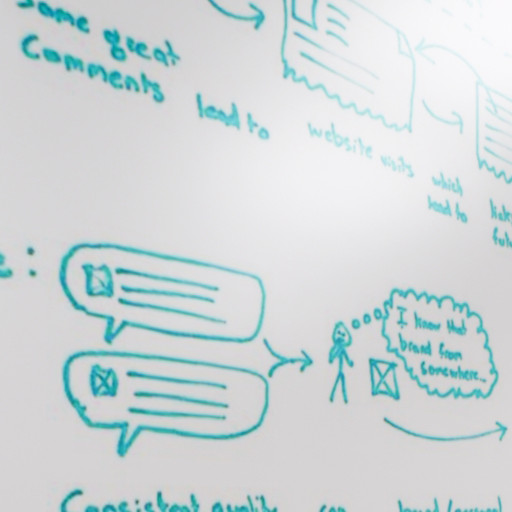 Some great
Comments
lead to
website visits
which
lead to
:
I know that
brand from
Somewhere...
Consistent quality can